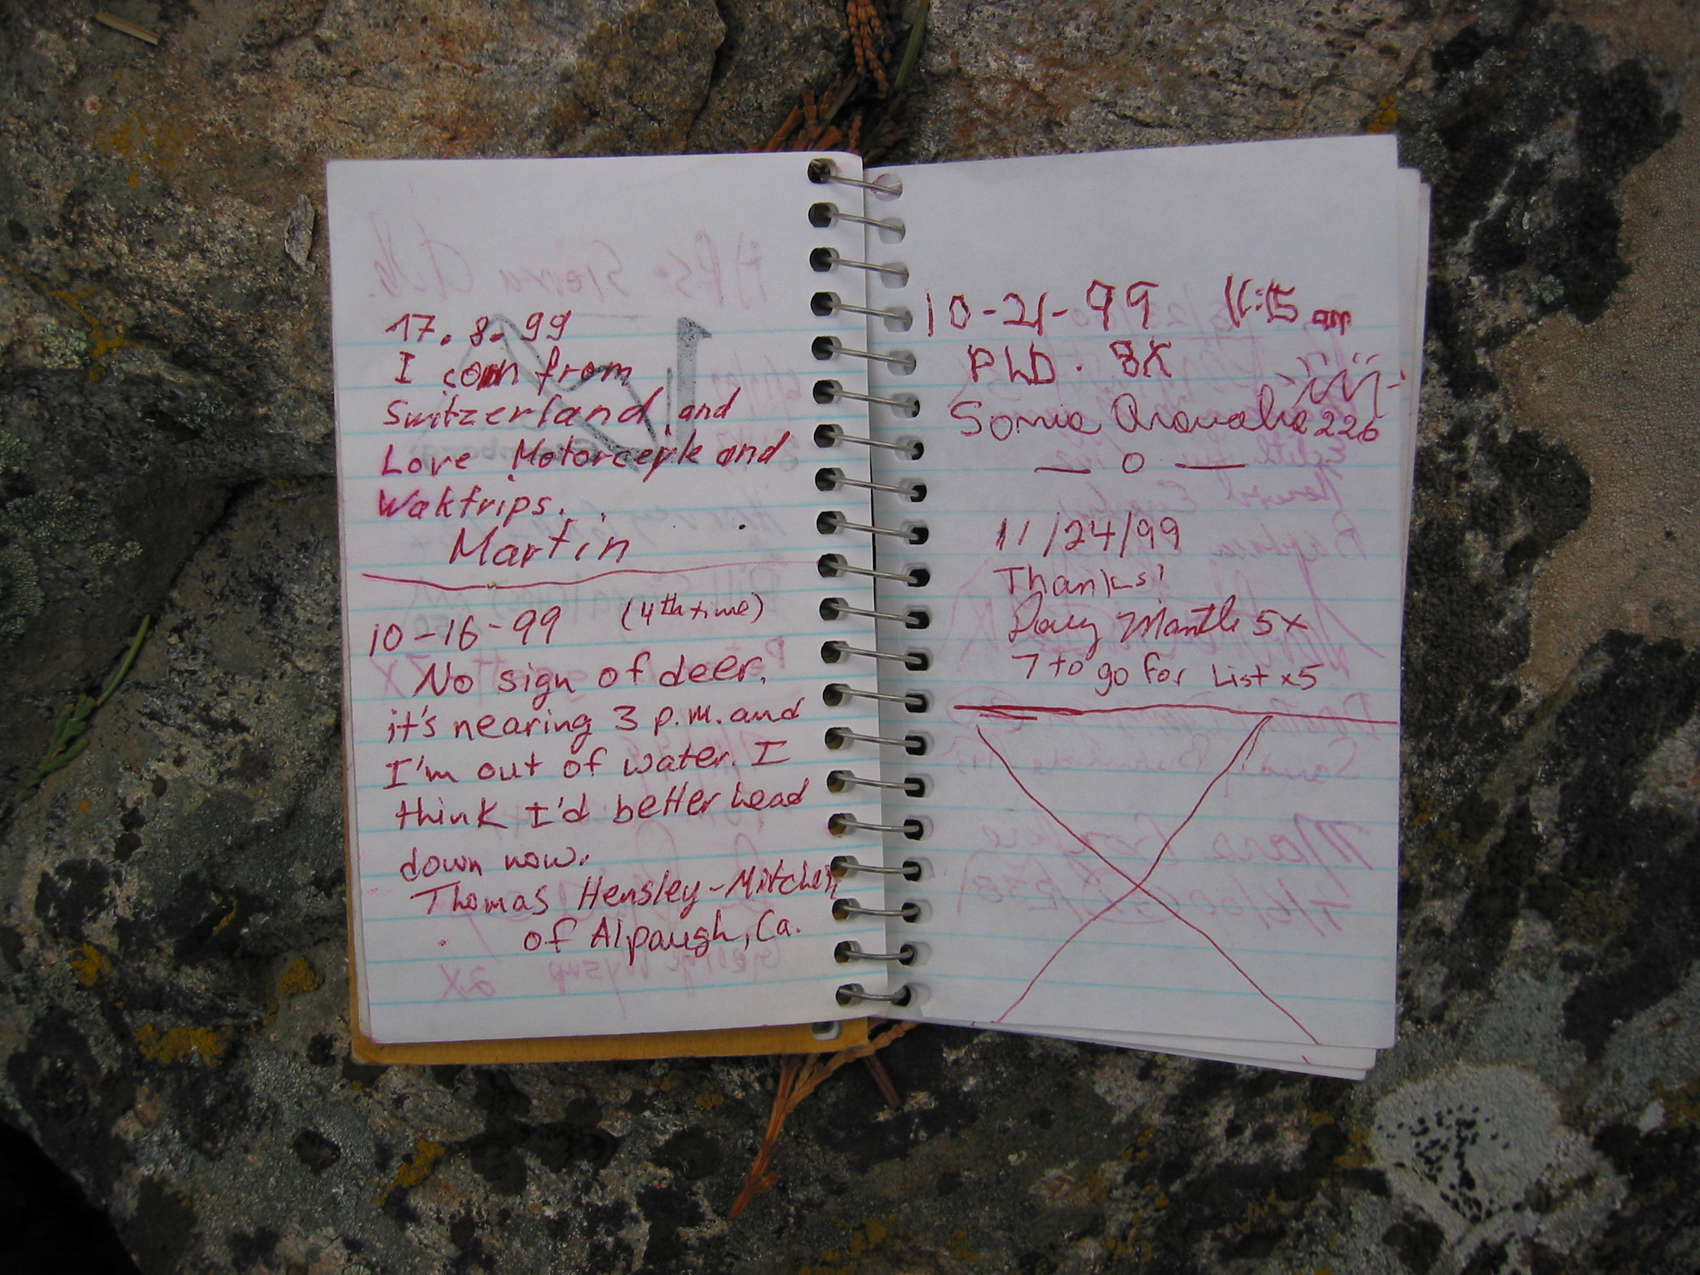 17.8.99
I com from
Switzerland, and
Love Motorceyk and
Waktrips.
Martin
10-16-99 (4th time)
No sign of deer,
it's nearing 3 p.m. and
I'm out of water. I
think I'd better head
down now.
Thomas Hensley-Mitchell
of Alpaugh, Ca.
10-21-99 11:15 am
PLD. 8X
Sonia 226
— 0 —
11/24/99
Thanks!
Doug Mantle 5x
7 to go for List x5